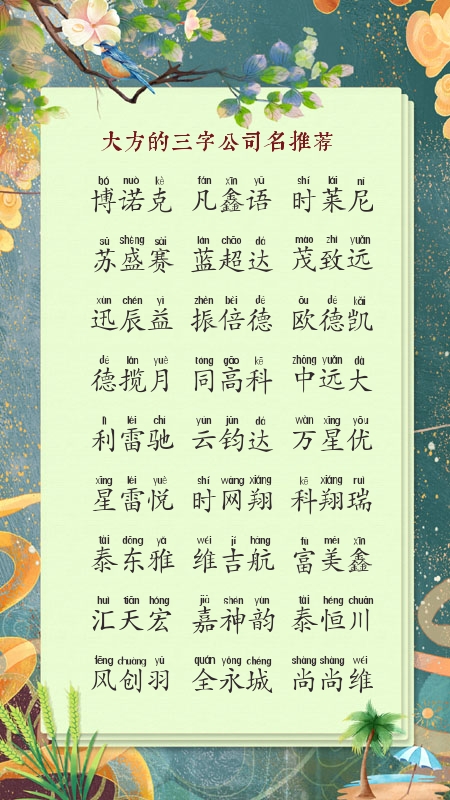 大方的三字公司名推荐
bó nuò kè fán xīn yǔ shí lái ní
博诺克 凡鑫语 时莱尼
sū shèng sài lán chāo dá mào zhì yuǎn
苏盛赛 蓝超达 茂致远
xùn chén yì zhèn bèi dé ōu dé kǎi
迅辰益 振倍德 欧德凯
dé lǎn yuè tóng gāo kē zhōng yuǎn dà
德揽月 同高科 中远大
lì léi chí yún jūn dá wàn xīng yōu
利雷驰 云钧达 万星优
xīng léi yuè shí wǎng xiáng kē xiáng ruì
星雷悦 时网翔 科翔瑞
tài dōng yǎ wéi jí háng fù měi xīn
泰东雅 维吉航 富美鑫
huì tiān hóng jiā shén yùn tài héng chuān
汇天宏 嘉神韵 泰恒川
fēng chuàng yǔ quán yǒng chéng shàng shàng wéi
风创羽 全永城 尚尚维